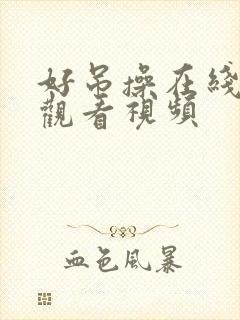 好吊操在綫
觀看視頻
血色風暴